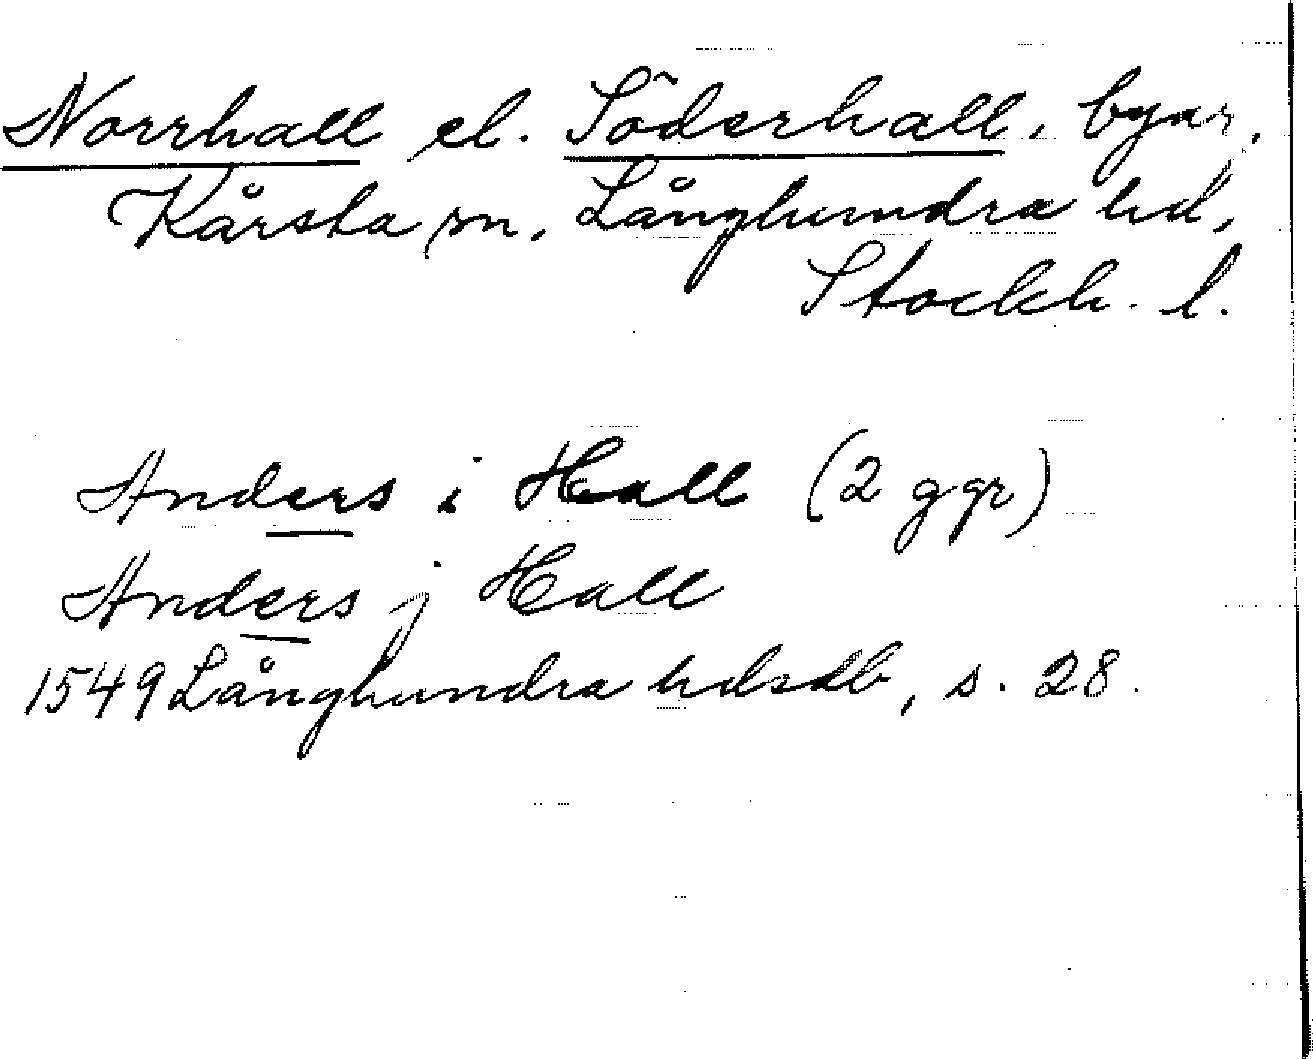 Norrhall el. Söderhall, byar,
Kårsta sn, Långhundra hd,
Stockh. l.
Anders i Hall (2 ggr)
Anders j Hall
1549 Långhundra hdsdb, s. 28.